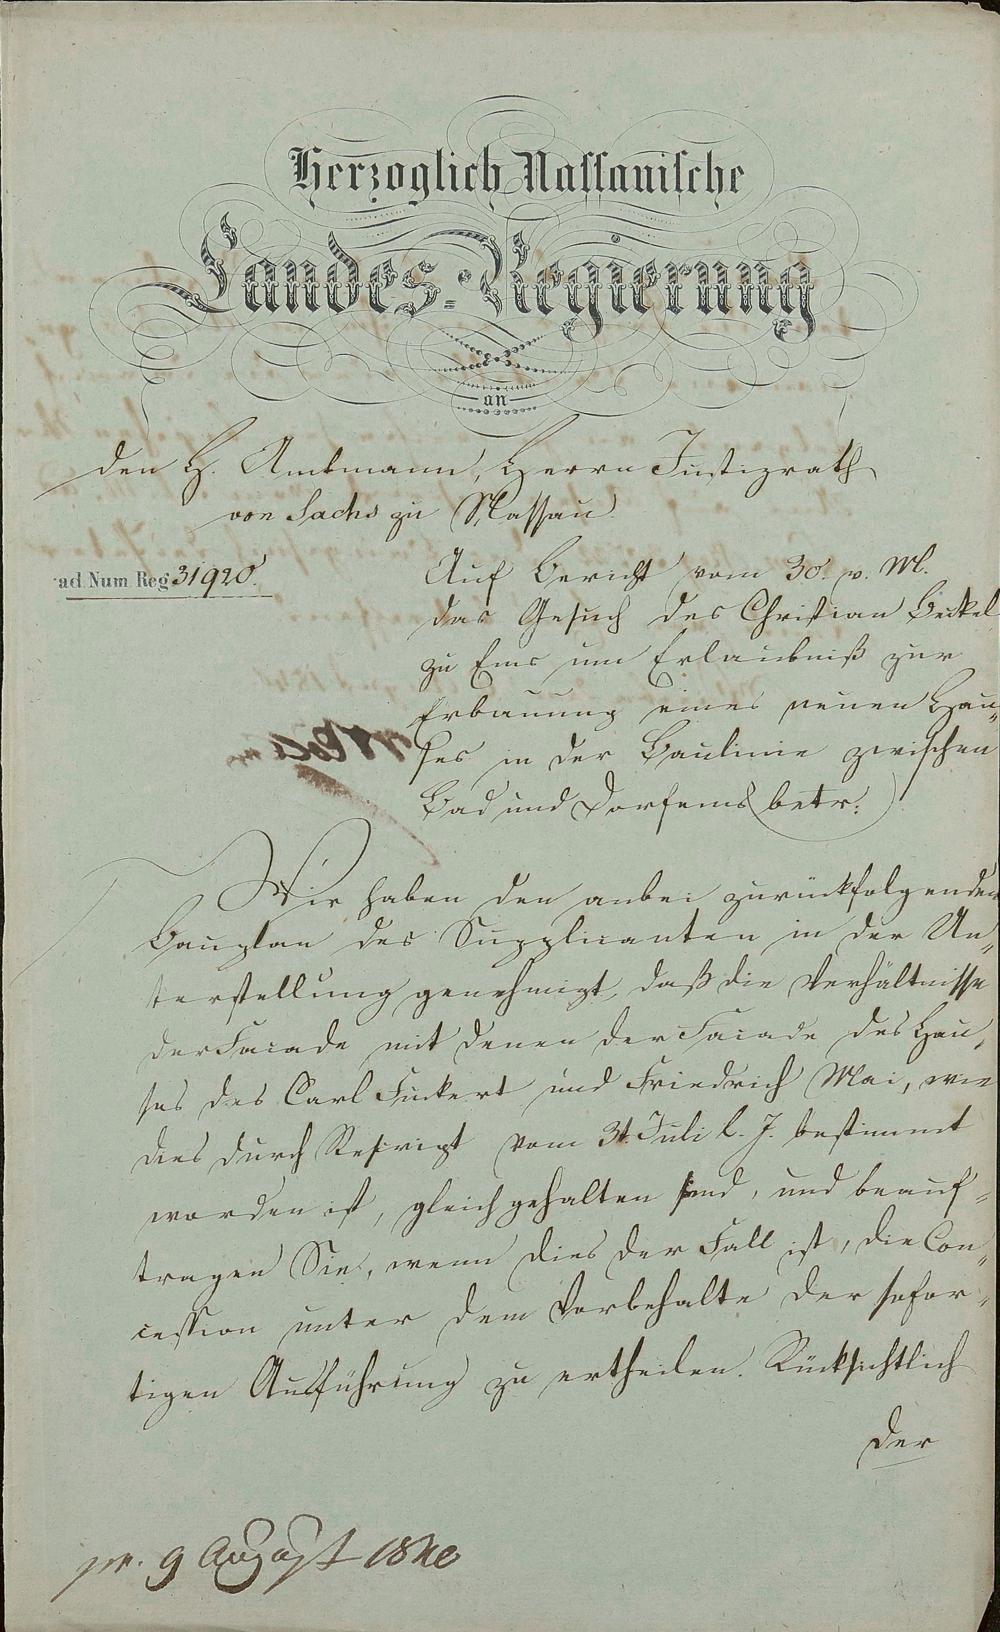 Herzoglich Nassauische
Landes-Regierung
an
den H. Amtmann, Herrn Justizrath
von Sachs zu Nassau.
ad Num Reg 31920.
Auf Bericht vom 30. v. M.
das Gesuch des Christian Beckel
zu Ems um Erlaubniß zur
Erbauung eines neuen Hau„
ses in der Baulinie zwischen
Bad und Dorfems betr.
Wir haben den anbei zurückfolgenden
Bauplan des Supplicanten in der Un„
terstellung genehmigt, daß die Verhältnisse
der Facade mit denen der Facade des Hau„
ses des Carl Fuckert und Friedrich Mai, wie
dies durch Rescript vom 31. Juli l. J. bestimmt
worden ist, gleich gehalten sind, und beauf„
tragen Sie, wenn dies der Fall ist, die Con„
cession unter dem Vorbehalte der sofor„
tigen Ausführung zu ertheilen. Rücksichtlich
der
pr. 9 August 1840